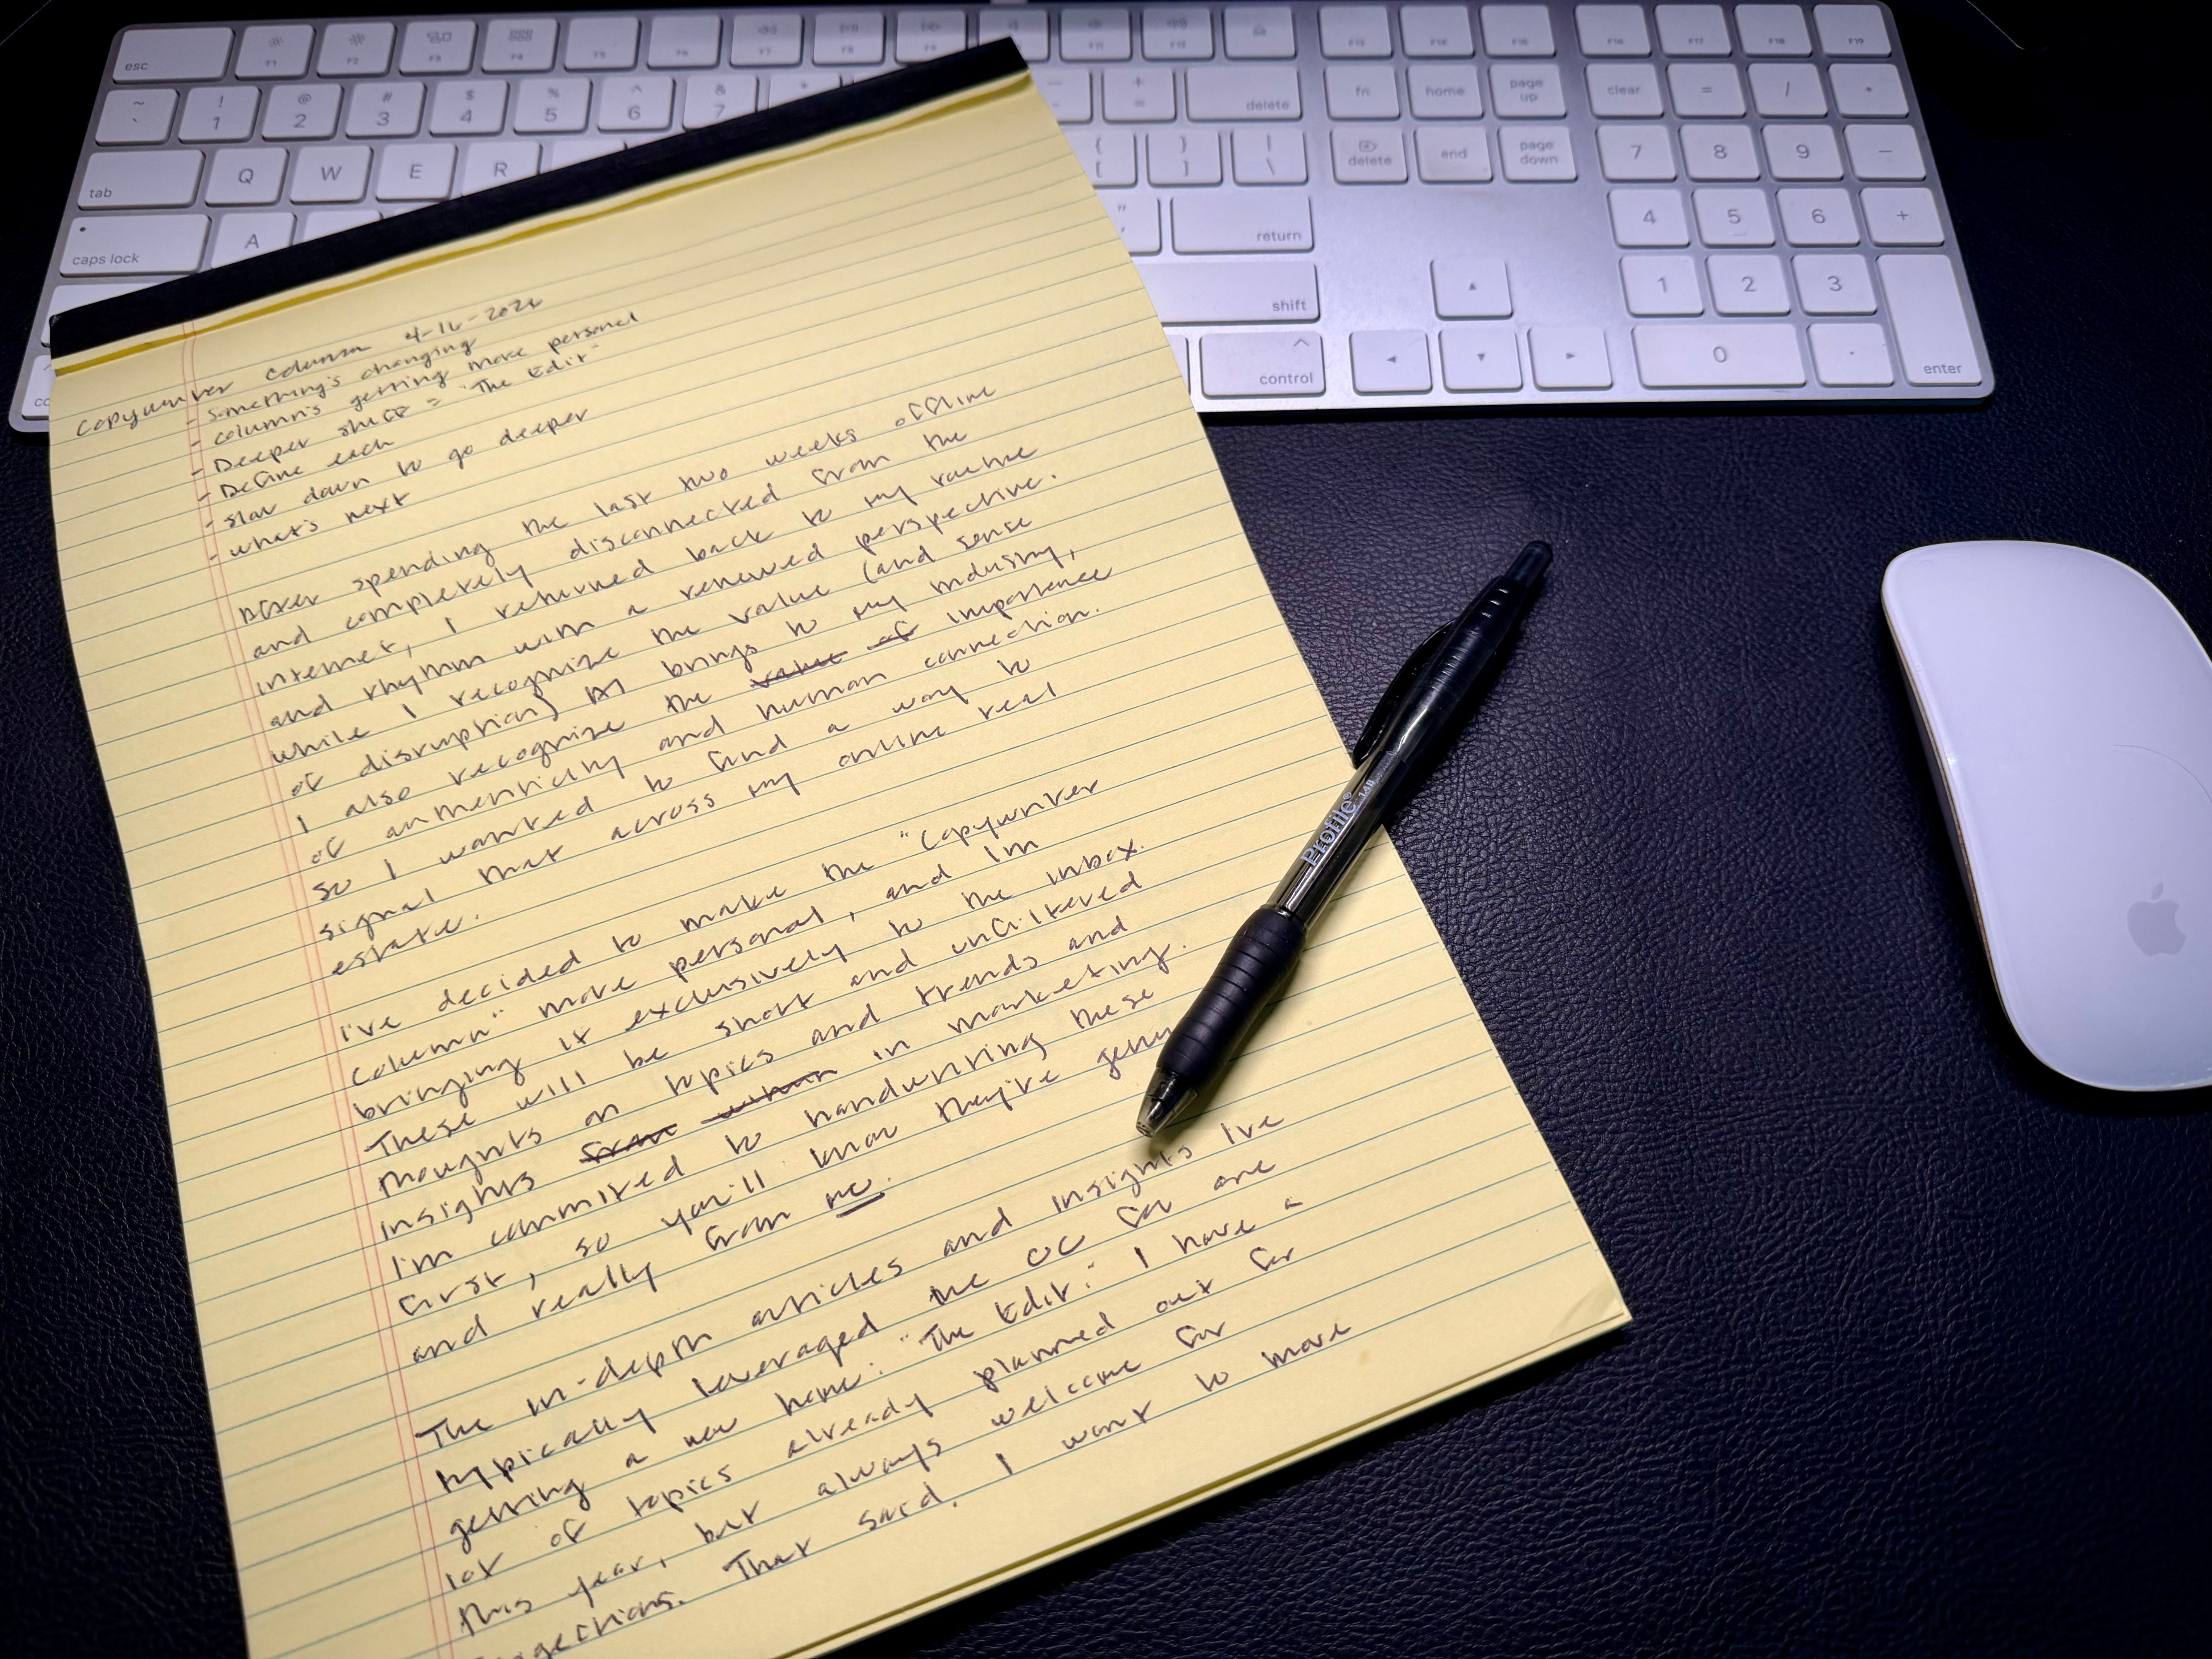 Copywriter Column 4-16-2024
- Something's changing
- Column's getting more personal
- Deeper stuff = "The Edit"
- Define each
- Slow down to go deeper
- What's next
After spending the last two weeks offline
and completely disconnected from the
internet, I returned back to my routine
and rhythm with a renewed perspective.
While I recognize the value (and sense
of disruption) AI brings to my industry,
I also recognize the value of importance
of authenticity and human connection.
So I wanted to find a way to
signal that across my online real
estate.
I've decided to make the "Copywriter
Column" more personal, and I'm
bringing it exclusively to the inbox.
These will be short and unfiltered
thoughts on topics and trends and
insights from within in marketing.
I'm commited to handwriting these
first, so you'll know they're
and really from me.
The in-depth articles and insights I've
typically leveraged the CC for are
getting a new home: "The Edit." I have a
lot of topics already planned out for
this year, but always welcome for
That said, I want to move
esc F1 F2 F3 F4 F5 F6 F7 F8 F9 F11 F12 F13 F14 F15 F16 F17 F18 F19
~ ` ! 1 @ 2 # 3 $ 4 % 5 ^ 6 & 7 * - + = delete fn home page up clear = / *
tab Q W E R { [ } ] | \ delete end page down 7 8 9 -
caps lock A " ' return 4 5 6 +
shift 1 2 3
control 0 . enter
Profile 1.4B